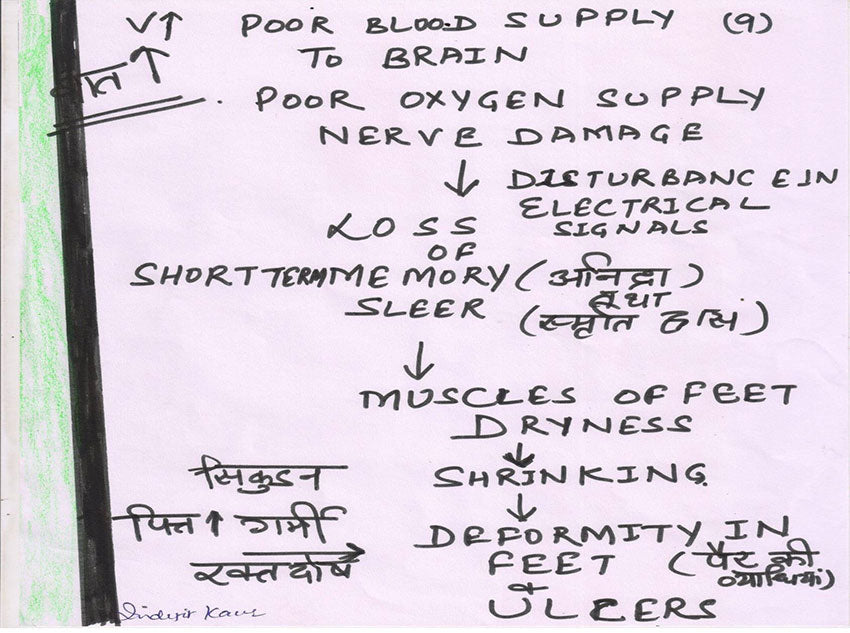 V↑ POOR BLOOD SUPPLY (9)
TO BRAIN
वात ↑
POOR OXYGEN SUPPLY
NERVE DAMAGE
↓ DISTURBANCE IN
ELECTRICAL
SIGNALS
LOSS
OF
SHORT TERM MEMORY (अनिद्रा)
तथा
SLEER (स्मृति ह्रास)
↓
MUSCLES OF FEET
DRYNESS
↓
सिकुडन SHRINKING
↓
पित्त ↑ गर्मी DEFORMITY IN
रक्तदोष FEET (पैर की
व्याधियां)
&
ULCERS
Inderjit Kaur